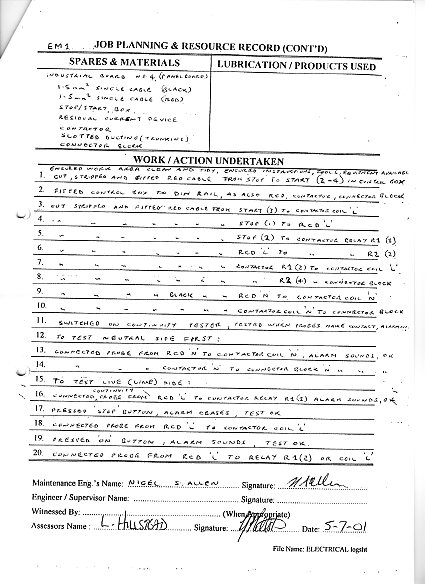 EM1 JOB PLANNING & RESOURCE RECORD (CONT'D)
SPARES & MATERIALS
LUBRICATION / PRODUCTS USED
INDUSTRIAL BOARD NO 4 (PANELBOARD)
1.5mm² SINGLE CABLE (BLACK)
1.5mm² SINGLE CABLE (RED)
STOP/START BOX
RESIDUAL CURRENT DEVICE
CONTACTOR
SLOTTED DUCTING (TRUNKING)
CONNECTOR BLOCK
WORK / ACTION UNDERTAKEN
ENSURED WORK AREA CLEAN AND TIDY, ENSURED INSTRUCTIONS, TOOLS, EQUIPMENT AVAILABLE
1. CUT, STRIPPED AND FITTED RED CABLE FROM STOP TO START (2-4) IN CONTROL BOX
2. FITTED CONTROL BOX TO DIN RAIL, AS ALSO RCD, CONTACTOR, CONNECTOR BLOCK
3. CUT STRIPPED AND FITTED RED CABLE FROM START (3) TO CONTACTOR COIL 'L'
4. " " " " " " STOP (1) TO RCD 'L'
5. " " " " " " STOP (2) TO CONTACTOR RELAY R1 (1)
6. " " " " " " RCD 'L' TO " " R2 (2)
7. " " " " " " CONTACTOR R1 (2) TO CONTACTOR COIL 'L'
8. " " " " " " " R2 (4) - CONNECTOR BLOCK
9. " " " BLACK " " RCD N TO CONTACTOR COIL 'N'
10. " " " " " " CONTACTOR COIL 'N' TO CONNECTOR BLOCK
11. SWITCHED ON CONTINUITY TESTER, TESTED WHEN PROBES MAKE CONTACT, ALARM ON
12. TO TEST NEUTRAL SIDE FIRST:
13. CONNECTED PROBE FROM RCD 'N' TO CONTACTOR COIL 'N', ALARM SOUNDS, OK
14. " " " CONTACTOR 'N' TO CONNECTOR BLOCK 'N' " " "
15. TO TEST LIVE (LINE) SIDE:
CONTINUITY
16. CONNECTED PROBE FROM RCD 'L' TO CONTACTOR RELAY R1 (1) ALARM SOUNDS, OK
17. PRESSED STOP BUTTON, ALARM CEASES, TEST OK
18. CONNECTED PROBE FROM RCD 'L' TO CONTACTOR COIL 'L'
19. PRESSED ON BUTTON, ALARM SOUNDS, TEST OK.
20. CONNECTED PROBE FROM RCD 'L' TO RELAY R1 (2) OR COIL 'L'
Maintenance Eng.'s Name: NIGEL S. ALLEN Signature: N Allen
Engineer / Supervisor Name: Signature:
Witnessed By: (When Appropriate)
Assessors Name : L. HILLSTEAD Signature: Date: 5-7-01
File Name: ELECTRICAL logsht